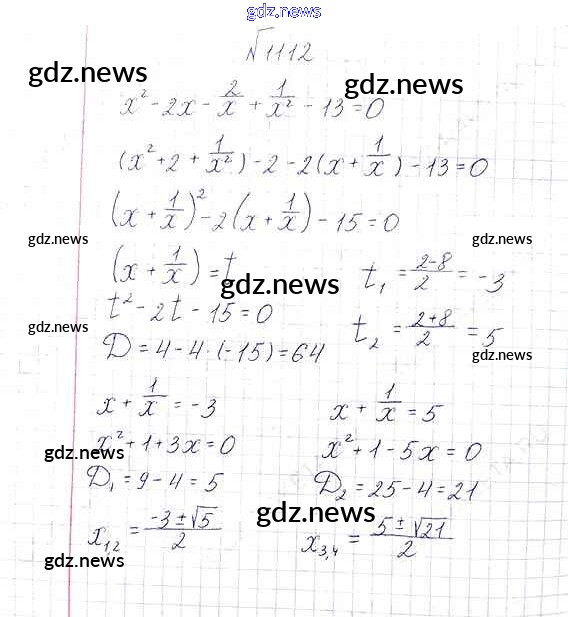 gdz.news
№1112
gdz.news
gdz.news
x² - 2x - 2/x + 1/x² - 13 = 0
(x² + 2 + 1/x²) - 2 - 2(x + 1/x) - 13 = 0
(x + 1/x)² - 2(x + 1/x) - 15 = 0
gdz.news gdz.news
(x + 1/x) = t t₁ = (2-8)/2 = -3
gdz.news
t² - 2t - 15 = 0 t₂ = (2+8)/2 = 5
gdz.news
D = 4 - 4 · (-15) = 64
gdz.news
x + 1/x = -3 x + 1/x = 5
x² + 1 + 3x = 0 x² + 1 - 5x = 0
gdz.news
D₁ = 9 - 4 = 5 D₂ = 25 - 4 = 21
gdz.news
x₁,₂ = (-3 ± √5)/2 x₃,₄ = (5 ± √21)/2
gdz.news